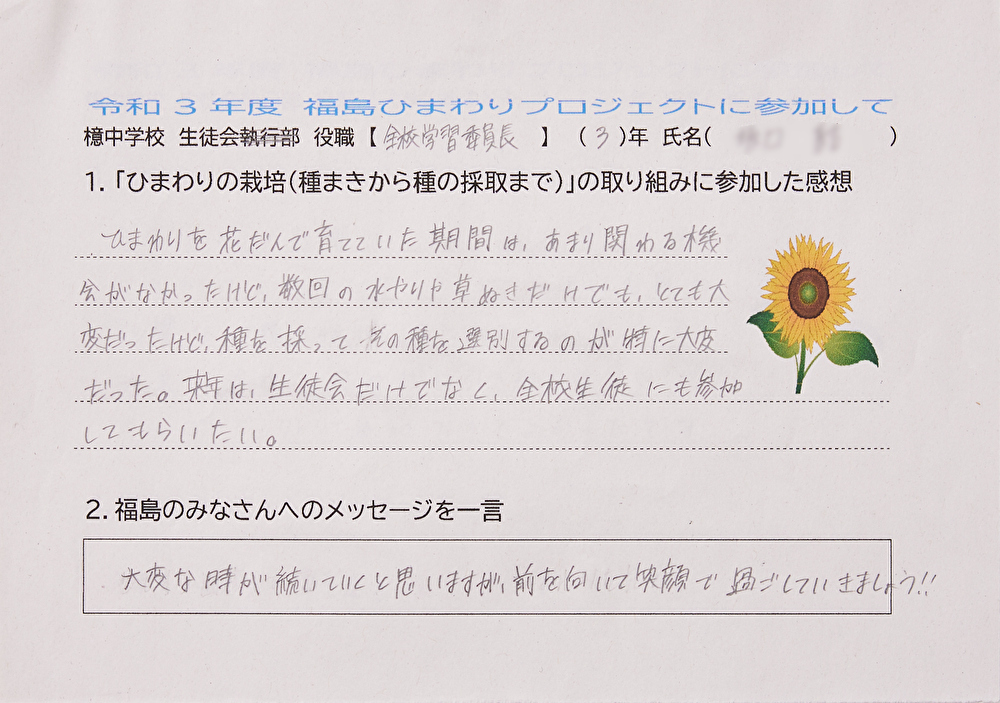 令和３年度 福島ひまわりプロジェクトに参加して
檍中学校 生徒会執行部 役職【全校学習委員長】 (3)年 氏名( )
1.「ひまわりの栽培(種まきから種の採取まで)」の取り組みに参加した感想
ひまわりを花だんで育てていた期間は、あまり関わる機
会がなかったけど、数回の水やりや草ぬきだけでも、とても大
変だったけど、種を採って、その種を選別するのが特に大変
だった。来年は、生徒会だけでなく、全校生徒にも参加
してもらいたい。
2. 福島のみなさんへのメッセージを一言
大変な時が続いていくと思いますが、前を向いて笑顔で過ごしていきましょう!!